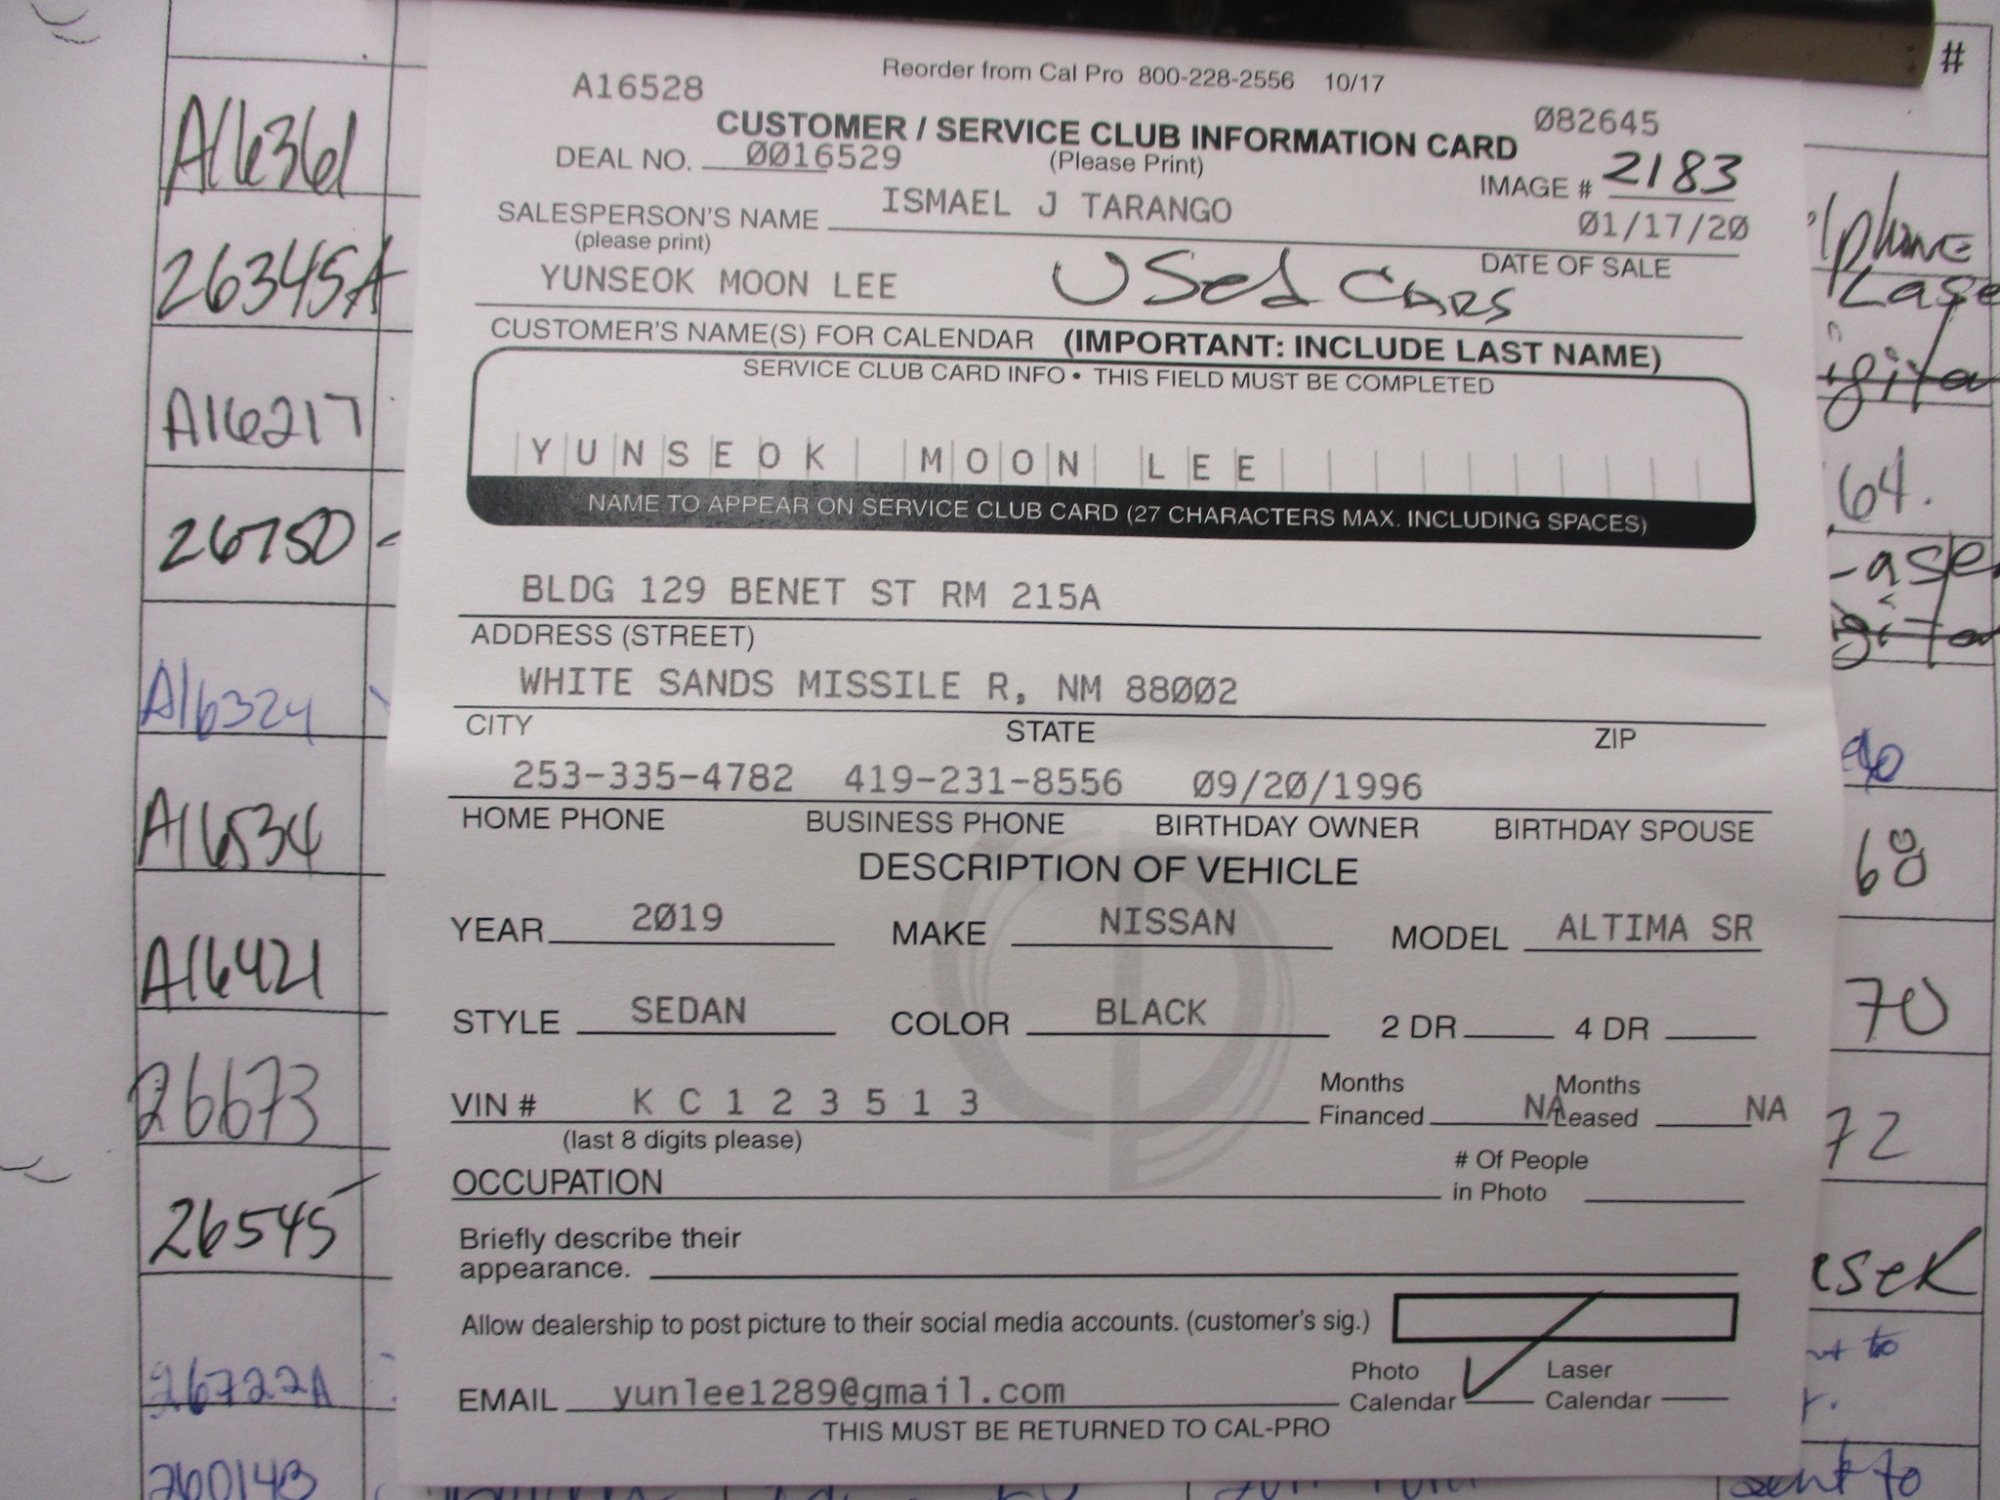 Reorder from Cal Pro 800-228-2556 10/17
A16528
CUSTOMER / SERVICE CLUB INFORMATION CARD 082645
DEAL NO. 0016529 (Please Print) IMAGE # 2183
SALESPERSON'S NAME ISMAEL J TARANGO 01/17/20
(please print) DATE OF SALE
YUNSEOK MOON LEE USed CARS
CUSTOMER'S NAME(S) FOR CALENDAR (IMPORTANT: INCLUDE LAST NAME)
SERVICE CLUB CARD INFO • THIS FIELD MUST BE COMPLETED
YUNSEOK MOON LEE
NAME TO APPEAR ON SERVICE CLUB CARD (27 CHARACTERS MAX. INCLUDING SPACES)
BLDG 129 BENET ST RM 215A
ADDRESS (STREET)
WHITE SANDS MISSILE R, NM 88002
CITY STATE ZIP
253-335-4782 419-231-8556 09/20/1996
HOME PHONE BUSINESS PHONE BIRTHDAY OWNER BIRTHDAY SPOUSE
DESCRIPTION OF VEHICLE
YEAR 2019 MAKE NISSAN MODEL ALTIMA SR
STYLE SEDAN COLOR BLACK 2 DR 4 DR
VIN # K C 1 2 3 5 1 3 Months Financed NA Months Leased NA
(last 8 digits please)
OCCUPATION # Of People in Photo
Briefly describe their
appearance.
Allow dealership to post picture to their social media accounts. (customer's sig.)
EMAIL yunlee1289@gmail.com Photo Calendar Laser Calendar
THIS MUST BE RETURNED TO CAL-PRO
A16361
26345A
A16217
26750
A16324
A16534
A16421
26673
26545
26722A
26014B
#
64.
68
70
72
sent to